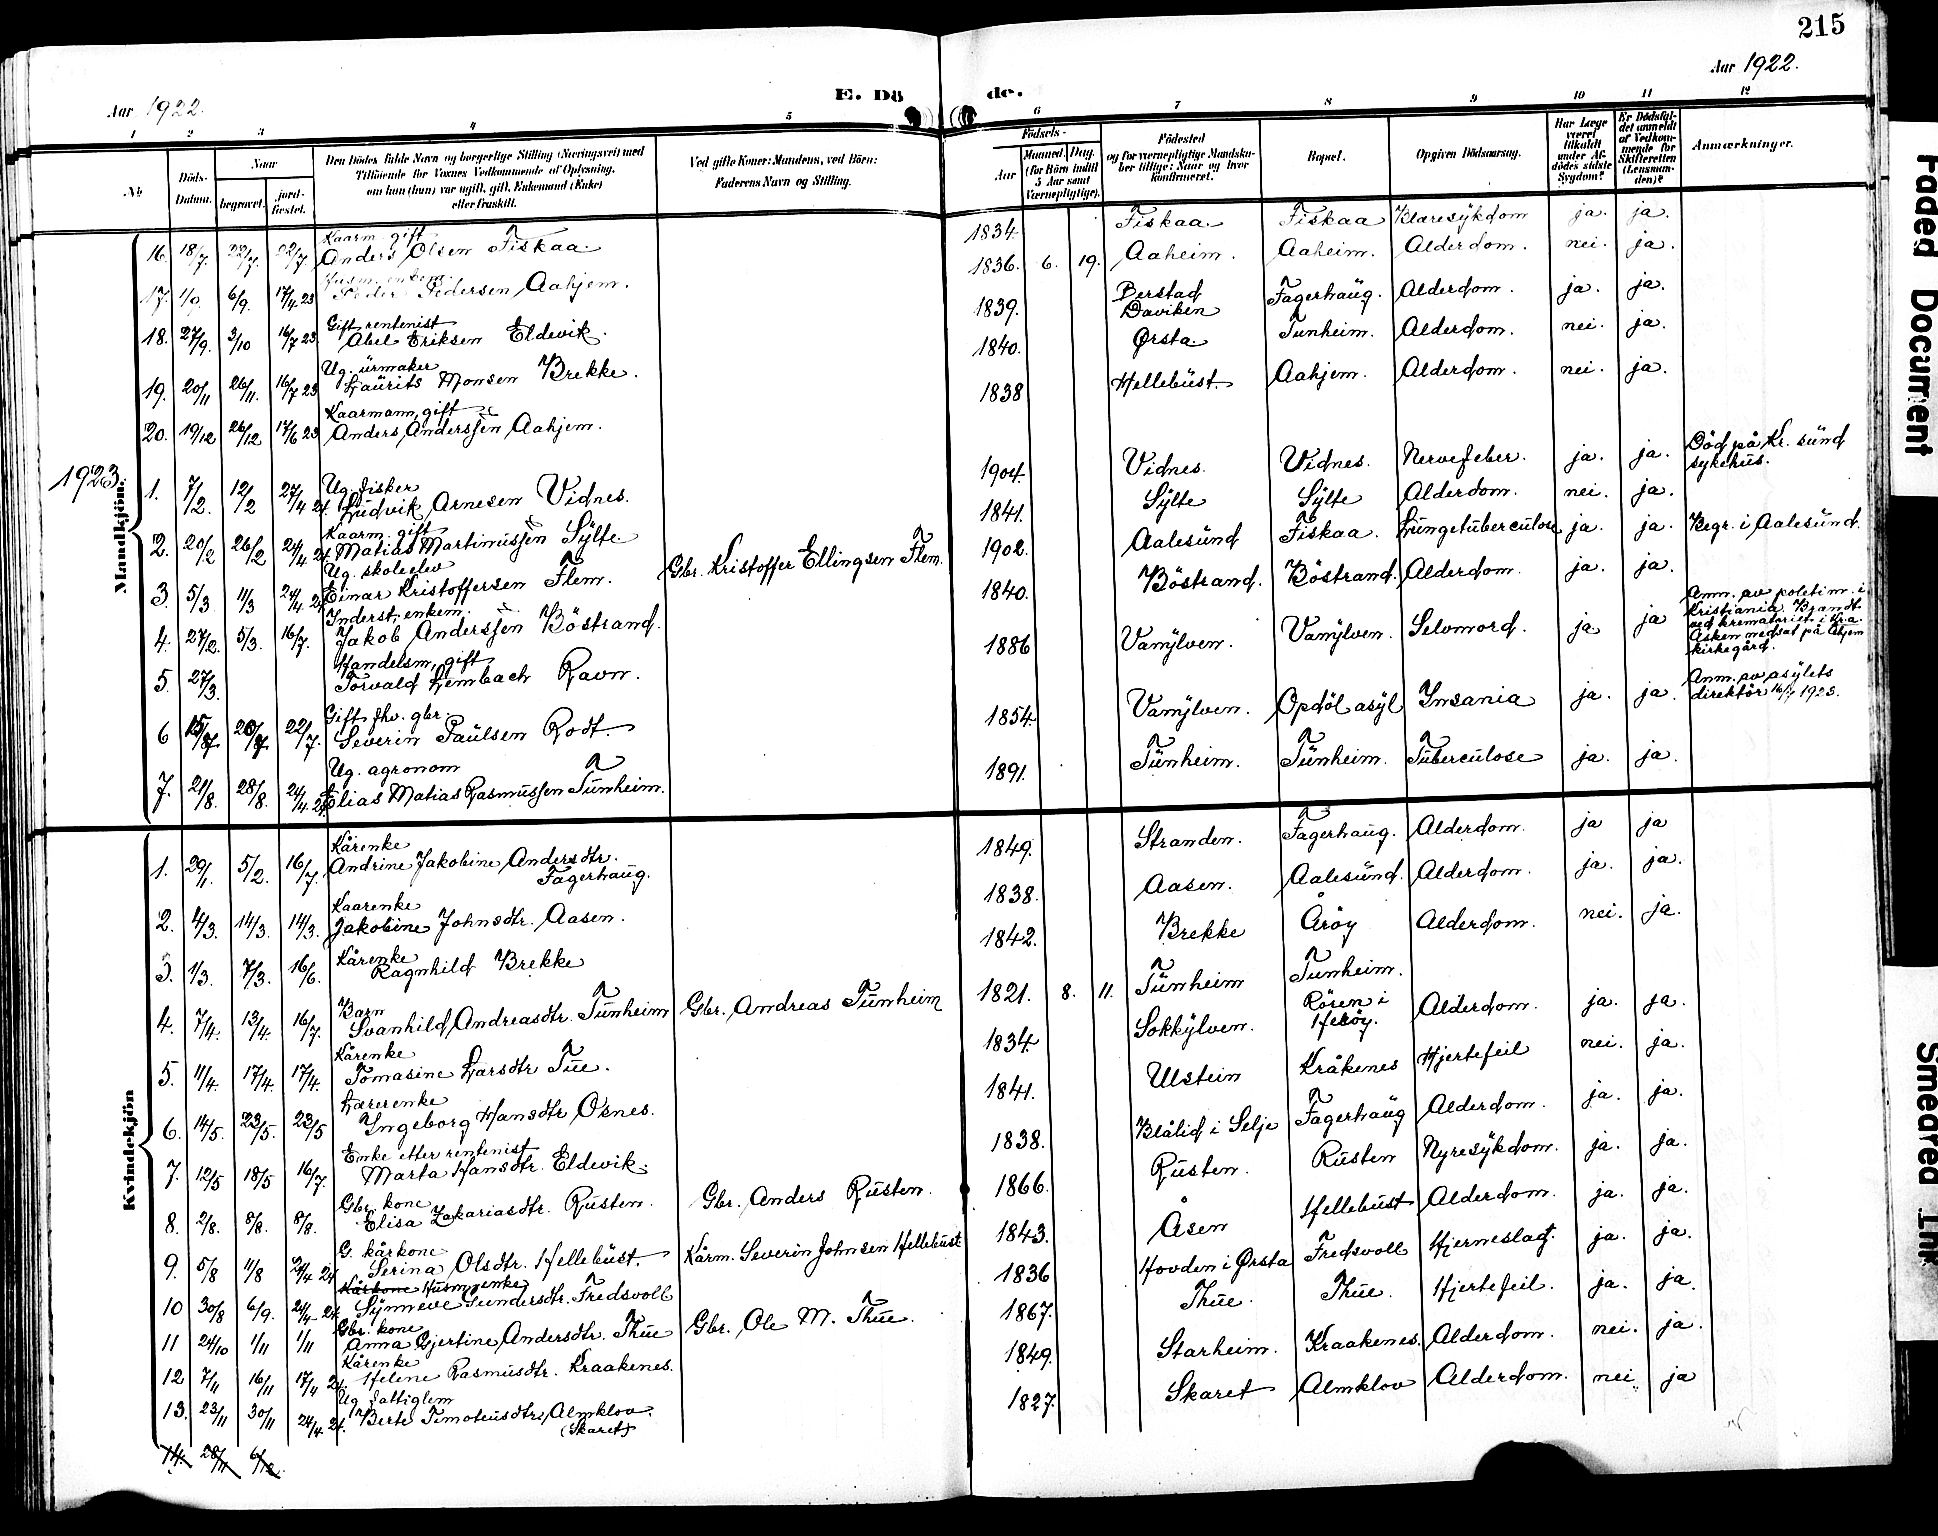 215
Aar 1922.
Aar 1922.
E. Dö de.
1 2 3 4 5 6 7 8 9 10 11 12
No
Döds-Datum.
Naar
begravet.
jord-fæstet.
Den Dödes fulde Navn og borgerlige Stilling (Næringsvei) med
Tilföiende for Voxnes Vedkommende af Oplysning,
om han (hun) var ugift, gift, Enkemand (Enke)
eller fraskilt.
Ved gifte Koner: Mandens, ved Börn:
Faderens Navn og Stilling.
Födsels-
Aar
Maaned. Dag.
(for Börn indtil 5 Aar samt Værnepligtige).
Födested
og for værnepligtige Mandskaber tillige: Naar og hvor konfirmeret.
Bopæl.
Opgiven Dödsaarsag.
Har Læge været tilkaldt under Afdödes sidste Sygdom?
Er Dödsfaldet anmeldt af Vedkommende for Skifteretten (Lensmanden)?
Anmærkninger.
Mandkjön.
16. 18/7. 22/7. 22/7 Kaarm. gift
Anders Olsen Fiskaa. 1834. Fiskaa. Fiskaa Klaresykdom ja. ja.
17. 1/9. 6/9. 17/4 23 Husm. enkem.
Peder Pedersen Aahjem. 1836. 6. 19. Aaheim. Aaheim. Alderdom. nei. ja.
18. 27/9. 3/10 16/7 23 Gift rentenist
Abel Eriksen Eldevik. 1839. Berstad Daviken Fagerhaug. Alderdom. ja. ja.
19. 20/11 26/11. 16/7 23 Ug. urmaker
Laurits Monsen Brekke. 1840. Ørsta Tunheim. Alderdom. nei. ja.
20. 19/12 26/12 17/6 23 Kaarmann, gift
Anders Anderssen Aahjem. 1838 Hellebust. Aahjem. Alderdom. nei. ja.
1923.
1. 7/2. 12/2 27/4 24. Ug. fisker
Ludvik Arnesen Vidnes. 1904. Vidnes. Vidnes. Nervefeber. ja. ja. Död på Kr. sund sykehus.
2. 20/2 26/2 24/4 24 Kaarm. gift
Matias Martinussen Sylte. 1841. Sylte Sylte Alderdom. nei. ja.
3. 5/3 11/3 24/4 24 Ug. skoleelev
Einar Kristoffersen Flem. Gbr. Kristoffer Ellingsen Flem. 1902. Aalesund Fiskaa. Lungetuberculose ja. ja. Begr. i Aalesund.
4. 27/2. 5/3. 16/7. Inderst, enkem.
Jakob Anderssen Böstrand. 1840. Böstrand. Böstrand. Alderdom. ja. ja.
5. 27/3. Handelsm, gift
Torvald Lembach Ravn. 1886 Vanylven. Vanylven. Selvmord. ja ja Anm. av politim. i
Kristiania. Brændt
ved krematoriet i Kr.a.
Asken nedsat på Åhjem
kirkegård.
6 15/7 20/7 22/7. Gift fhv. gbr.
Severin Paulsen Rodt. 1854. Vanylven. Opdöl asyl Insania ja. ja. Anm. av asylets
direktör 16/7 1923.
7. 21/8. 28/8. 24/4 24. Ug. agronom
Elias Matias Rasmussen Tunheim. 1891. Tunheim. Tunheim. Tuberculose ja. ja.
Kvindekjön
1. 29/1. 5/2. 16/7. Kårenke
Andrine Jakobine Andersdtr.
Fagerhaug. 1849. Stranden. Fagerhaug. Alderdom. ja ja
2. 4/3. 14/3. 14/3. Kaarenke
Jakobine Johnsdtr. Aasen. 1838. Aasen. Aalesund. Alderdom. ja. ja.
3. 1/3. 7/3. 16/6. Kårenke
Ragnhild Brekke 1842. Brekke Åröy Alderdom. nei. ja.
4. 7/4. 13/4. 16/7. Barn
Svanhild Andreasdtr. Tunheim Gbr. Andreas Tunheim 1821. 8. 11. Tunheim Tunheim.
5. 11/4. 17/4. 17/4. Kårenke
Tomasine Larsdtr Tue. 1834. Sökkylven. Rören i Heröy. Alderdom. ja. ja.
6. 14/5. 23/5. 23/5 Lærerenke
Ingeborg Hansdtr Osnes. 1841. Ulstein Kråkenes Hjertefeil nei. ja.
7. 12/5 18/5 16/7. Enke etter rentenist
Marta Hansdtr. Eldevik. 1838. Blålid i Selje Fagerhaug Alderdom. ja. ja.
8. 2/8. 8/8. 8/8. Gbr. kone
Elisa Zakariasdtr. Rusten. Gbr. Anders Rusten. 1866. Rusten. Rusten Nyresykdom. ja. ja.
9. 5/8 11/8 24/4 24 G. kårkone
Serina Olsdtr. Hellebust. Kårm. Severin Johnsen Hellebust 1843. Åsen Hellebust Alderdom. ja. ja.
10 30/8 6/9. 24/4 24. Kårkone Husm.enke
Synneve Gundersdtr. Fredsvoll 1836 Hovden i Ørsta Fredsvoll Hjerneslag. ja. ja.
11 24/10 1/11 1/11 Gbr. kone
Anna Gjertine Andersdtr. Thue Gbr. Ole M. Thue. 1867. Thue. Thue. Hjertefeil. ja. ja.
12 7/11 16/11 17/4 24. Kårenke
Helene Rasmusdtr. Kraakenes. 1849. Starheim. Kraakenes. Alderdom. nei. ja.
13. 23/11 30/11 24/4 24. Ug. fattiglem
Berte Timoteusdtr. Almklov.
(Skaret) 1827. Skaret Almklov Alderdom. nei. ja
14. 28/11 6/12.
Faded Document
Smeared Ink